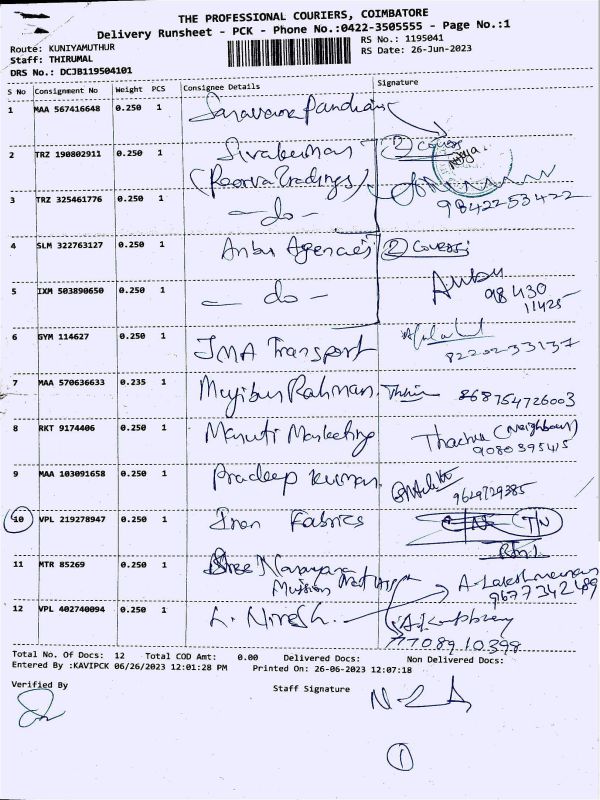 THE PROFESSIONAL COURIERS, COIMBATORE
Delivery Runsheet - PCK - Phone No.:0422-3505555 - Page No.:1
Route: KUNIYAMUTHUR
Staff: THIRUMAL
DRS No.: DCJB119504101
RS No.: 1195041
RS Date: 26-Jun-2023
S No Consignment No Weight PCS Consignee Details Signature
1 MAA 567416648 0.250 1 Saravana Pandian
2 TRZ 190802911 0.250 1 Sivakumar (2) Cover
(Poorva Tradings)
3 TRZ 325461776 0.250 1 - do - 9842253422
4 SLM 322763127 0.250 1 Anbu Agencies (2) Covers
5 IXM 503890650 0.250 1 - do - Anbu
98430
11425
6 GYM 114627 0.250 1 JMA Transport 8220233137
7 MAA 570636633 0.235 1 Mujibur Rahman. 868754726003
8 RKT 9174406 0.250 1 Maruti Marketing (Neighbour)
9080395415
9 MAA 103091658 0.250 1 Pradeep Kumar. 9629729385
10 VPL 219278947 0.250 1 Iran Fabrics TN
11 MTR 85269 0.250 1 Shree Narayana Mission A. Lakshmanan
9677342489
12 VPL 402740094 0.250 1 L. Nivesh.
7708910398
Total No. Of Docs: 12 Total COD Amt: 0.00 Delivered Docs: Non Delivered Docs:
Entered By :KAVIPCK 06/26/2023 12:01:28 PM Printed On: 26-06-2023 12:07:18
Verified By Staff Signature
1